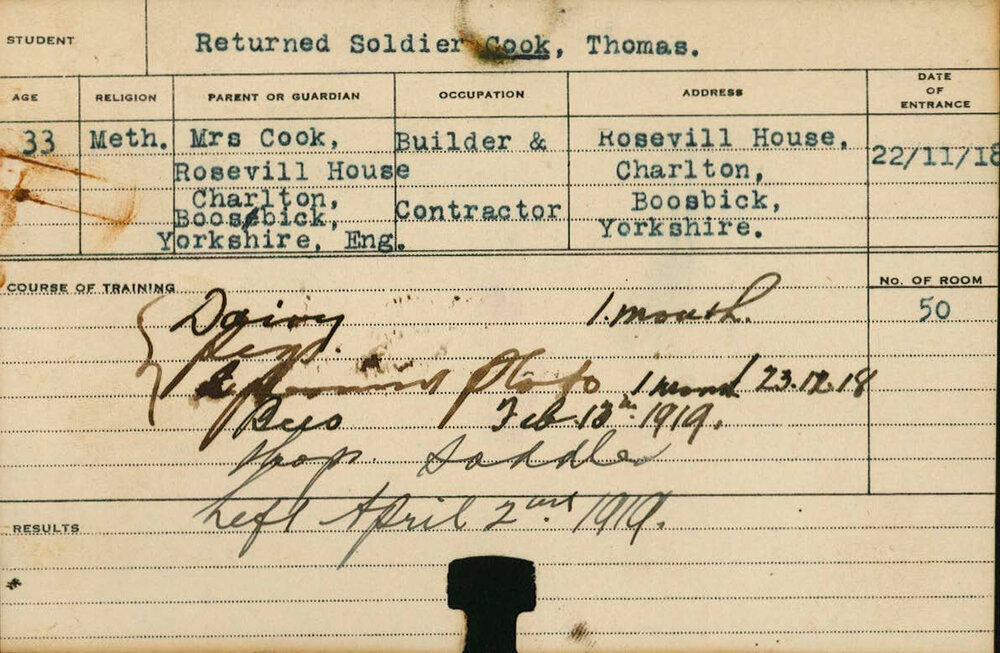 STUDENT Returned Soldier Cook, Thomas.
AGE RELIGION PARENT OR GUARDIAN OCCUPATION ADDRESS DATE OF ENTRANCE
33 Meth. Mrs Cook, Builder & Rosevill House, 22/11/18
Rosevill House Charlton,
Charlton, Contractor Boosbick,
Boosbick, Yorkshire.
Yorkshire, Eng.
COURSE OF TRAINING No. OF ROOM
Dairy 1. month. 50
Pigs.
Plots 1 month 23.12.18
Bees Feb. 13th 1919.
Saddler
Left April 2nd 1919.
RESULTS